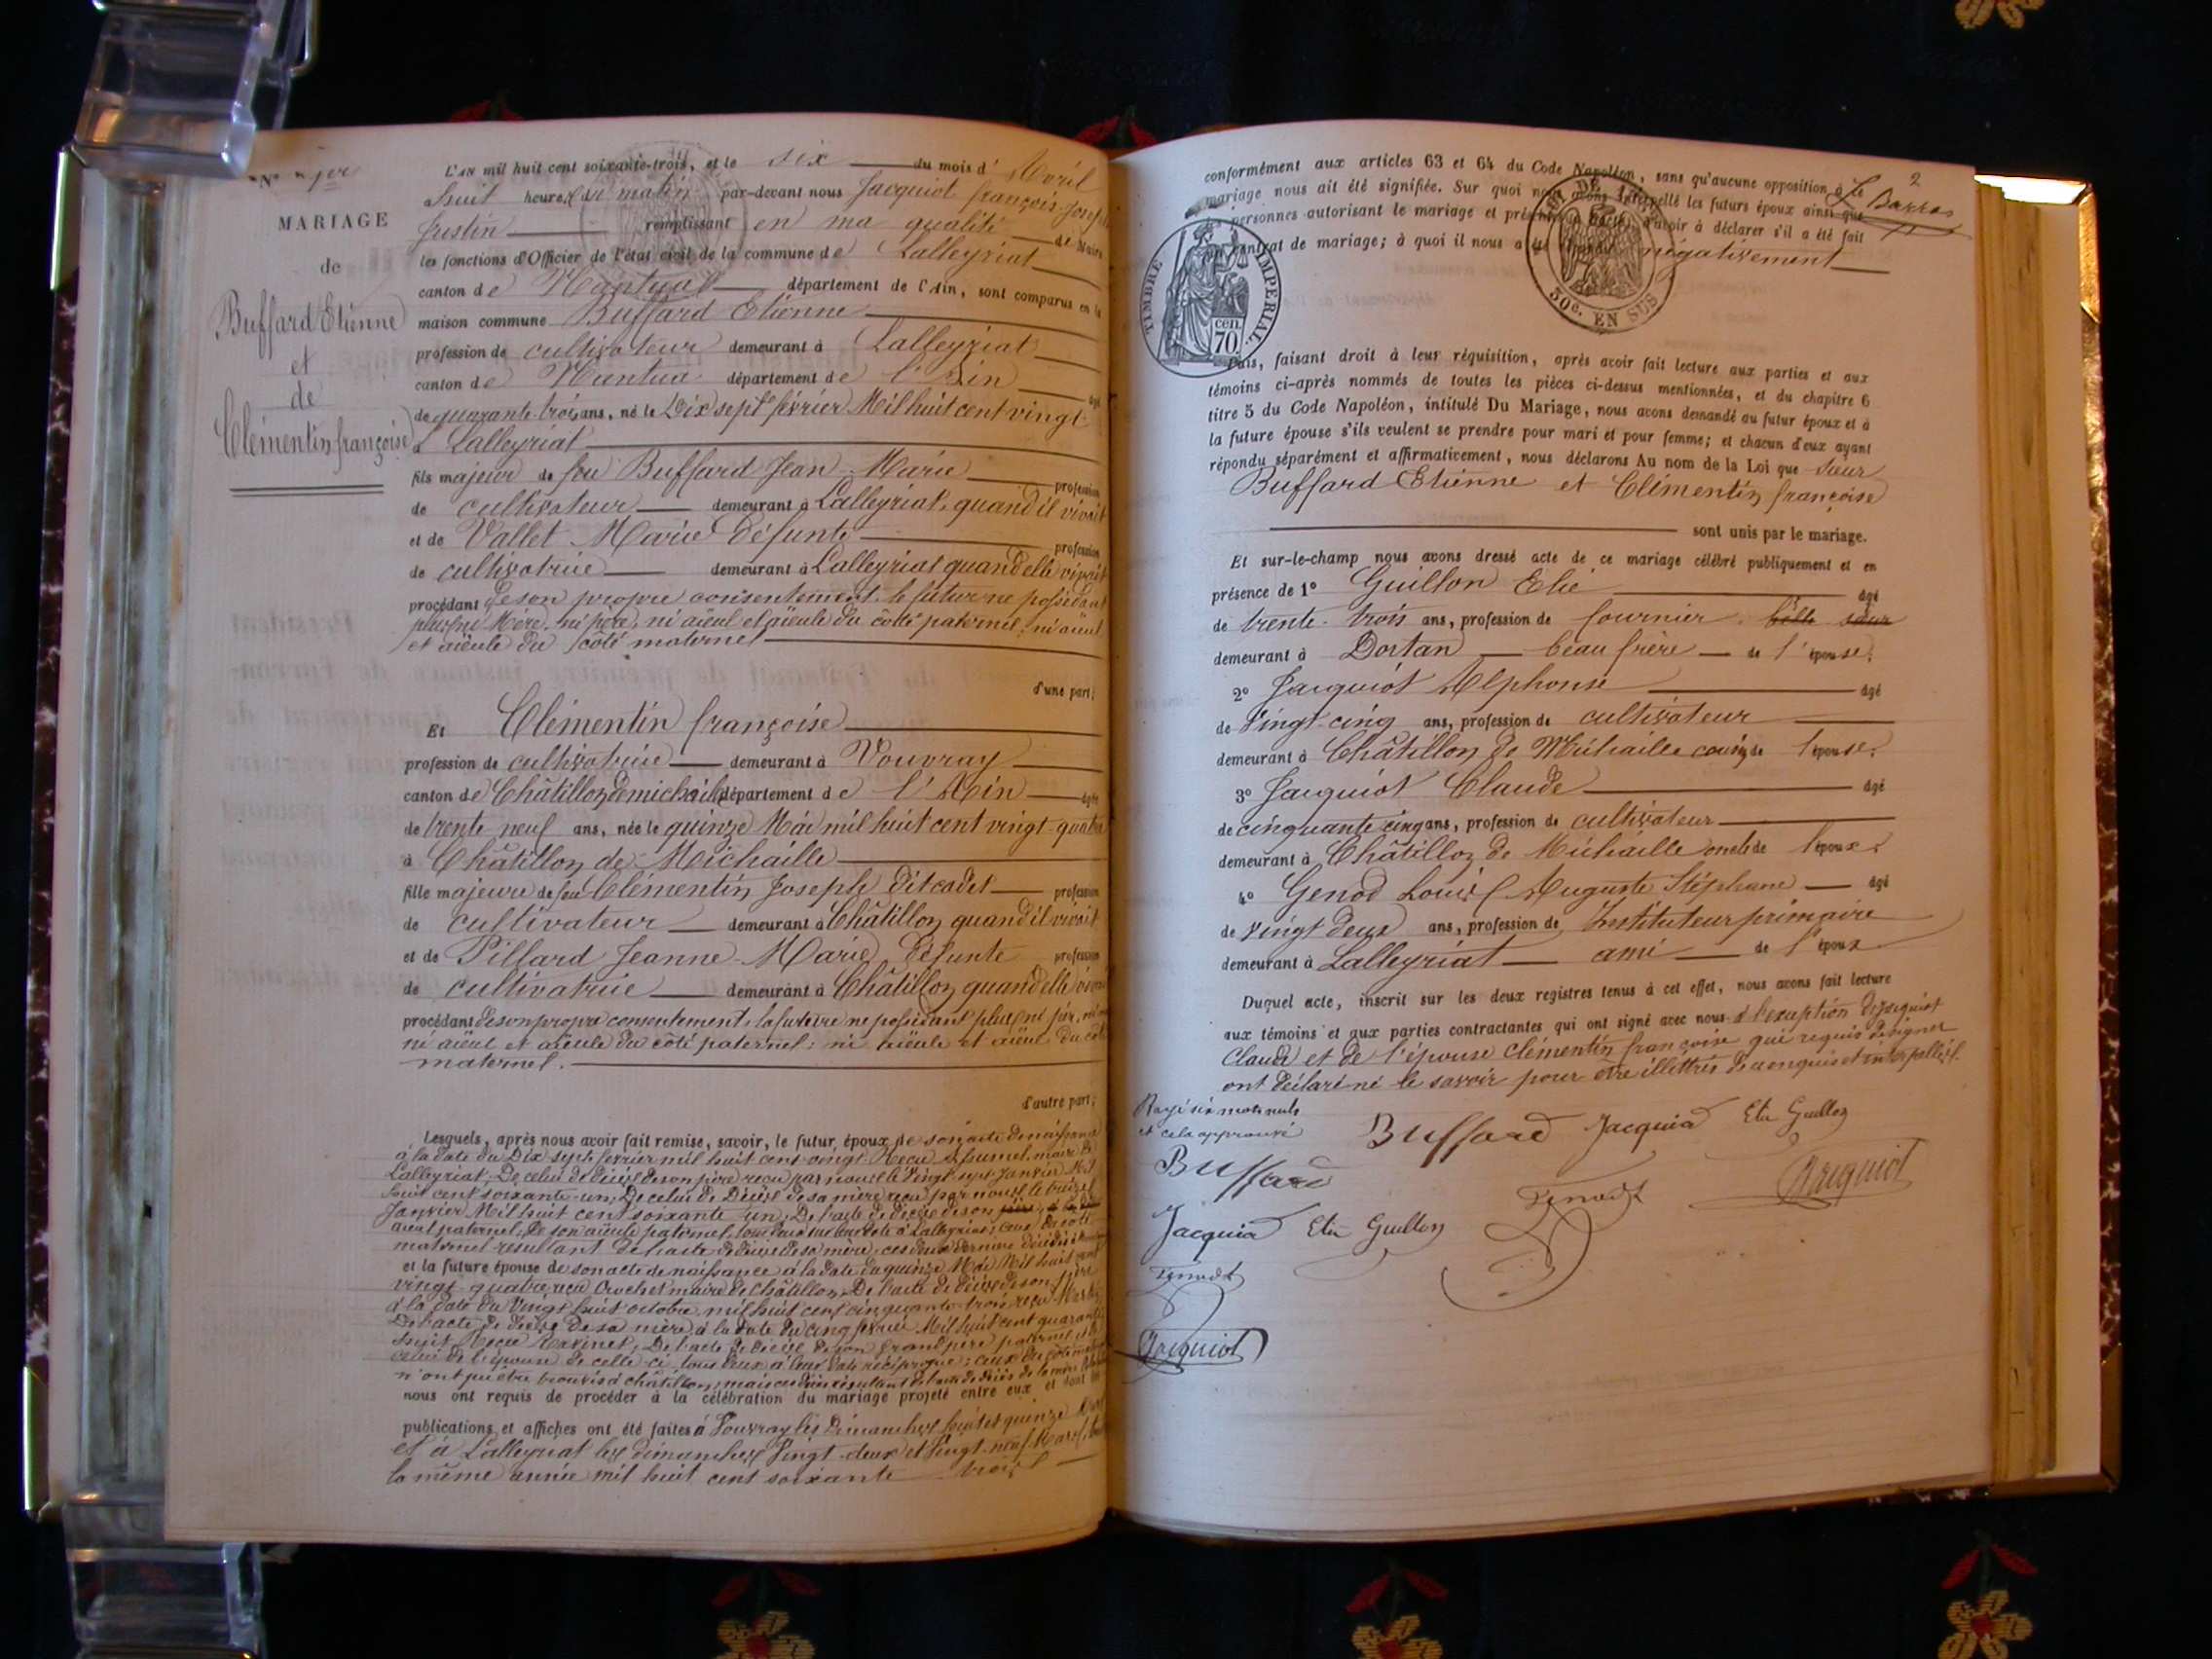 N° 1er
MARIAGE
de
Buffard Etienne
et
de
Clémentin françoise
L'AN mil huit cent soixante-trois, et le six du mois d'Avril
huit heures du matin par-devant nous Jacquiot françois-Joseph
Justin remplissant en ma qualité de Maire
les fonctions d'Officier de l'état civil de la commune de Lalleyriat
canton de Nantua département de l'Ain, sont comparus en la
maison commune Buffard Etienne
profession de cultivateur demeurant à Lalleyriat
canton de Nantua département de l'Ain âgé
de quarante-trois ans, né le Dix sept février Mil huit cent vingt
à Lalleyriat
fils majeur de feu Buffard Jean-Marie profession
de cultivateur demeurant à Lalleyriat, quand il vivait
et de Vallet Marie défunte profession
de cultivatrice demeurant à Lalleyriat quand elle vivait
procédant de son propre consentement. le futur ne possédant
plus ni Mère, ni père, ni aïeul et aïeule du côté paternel, ni aïeul
et aïeule du côté maternel
d'une part;
Et Clémentin françoise
profession de cultivatrice demeurant à Vouvray
canton de Châtillon de michaille département de l'Ain âgée
de trente neuf ans, née le quinze Mai mil huit cent vingt-quatre
à Châtillon de Michaille
fille majeure de feu Clémentin Joseph dit cadet profession
de cultivateur demeurant à Châtillon quand il vivait
et de Pillard Jeanne-Marie défunte profession
de cultivatrice demeurant à Châtillon quand elle vivait
procédant de son propre consentement, la future ne possédant plus ni père, ni mère
ni aïeul et aïeule du côté paternel; ni aïeule et aïeul du côté
maternel.
d'autre part;
Lesquels, après nous avoir fait remise, savoir, le futur époux de son acte de naissance
à la date du Dix-sept février mil huit cent vingt. Reçu maire de
Lalleyriat; De celui de décès de son père reçu par nous le Vingt-sept Janvier Mil
huit cent soixante-un; De celui de Décès de sa mère reçu par nous le treize
Janvier Mil huit cent soixante-un; De l'acte de décès de son
aïeul paternel, de son aïeule paternelle, tous deux à Lalleyriat; ceux du côté
maternel résultant de l'acte de décès de sa mère, ces deux derniers décédés
et la future épouse de son acte de naissance à la date du quinze Mai Mil huit cent
vingt-quatre, reçu Crochet maire de Châtillon; De l'acte de décès de son père
à la date du Vingt huit octobre mil huit cent cinquante-trois reçu
De l'acte de décès de sa mère, à la date du cinq février Mil huit cent quarante
huit Reçu Ravinet; De l'acte de décès de son Grand père paternel et de
celui de l'épouse de celle-ci, tous deux à leur date réciproque; ceux du côté maternel
n'ont pu être trouvés à châtillon, mais ces décès résultent de l'acte de décès de la mère
nous ont requis de procéder à la célébration du mariage projeté entre eux et dont les
publications et affiches ont été faites à Vouvray les Dimanches huit et quinze Mars
et à Lalleyriat les dimanches Vingt-deux et Vingt-neuf Mars, tous
la même année mil huit cent soixante-trois
2
Le Barras
conformément aux articles 63 et 64 du Code Napoléon, sans qu'aucune opposition à ce
mariage nous ait été signifiée. Sur quoi nous avons interpellé les futurs époux ainsi que
les personnes autorisant le mariage et présentes à l'acte, d'avoir à déclarer s'il a été fait
un contrat de mariage; à quoi il nous a été répondu négativement
TIMBRE IMPERIAL.
70 cen.
30c. EN SUS
Puis, faisant droit à leur réquisition, après avoir fait lecture aux parties et aux
témoins ci-après nommés de toutes les pièces ci-dessus mentionnées, et du chapitre 6
titre 5 du Code Napoléon, intitulé Du Mariage, nous avons demandé au futur époux et à
la future épouse s'ils veulent se prendre pour mari et pour femme; et chacun d'eux ayant
répondu séparément et affirmativement, nous déclarons Au nom de la Loi que
Buffard Etienne et Clémentin françoise
sont unis par le mariage.
Et sur-le-champ nous avons dressé acte de ce mariage célébré publiquement et en
présence de 1° Guillon Elie âgé
de trente-trois ans, profession de fournier belle sœur
demeurant à Dortan beau frère de l'épouse.
2° Jacquiot Alphonse âgé
de Vingt-cinq ans, profession de cultivateur
demeurant à Châtillon de Michaille cousin de l'épouse.
3° Jacquiot Claude âgé
de cinquante cinq ans, profession de cultivateur
demeurant à Châtillon de Michaille oncle de l'époux.
4° Genod Louis Auguste Stéphane âgé
de vingt deux ans, profession de Instituteur primaire
demeurant à Lalleyriat ami de l'époux
Duquel acte, inscrit sur les deux registres tenus à cet effet, nous avons fait lecture
aux témoins et aux parties contractantes qui ont signé avec nous à l'exeption de Jacquiot
Claude et de l'épouse Clémentin françoise qui requis de signer
ont déclaré ne le savoir pour être illettrés de ce enquis et interpellés.
Rayé six mots nuls
et cela approuvé
Buffard Jacquiot Elie Guillon
Buffard Genod Jacquiot
Jacquiot Elie Guillon
Genod
Jacquiot